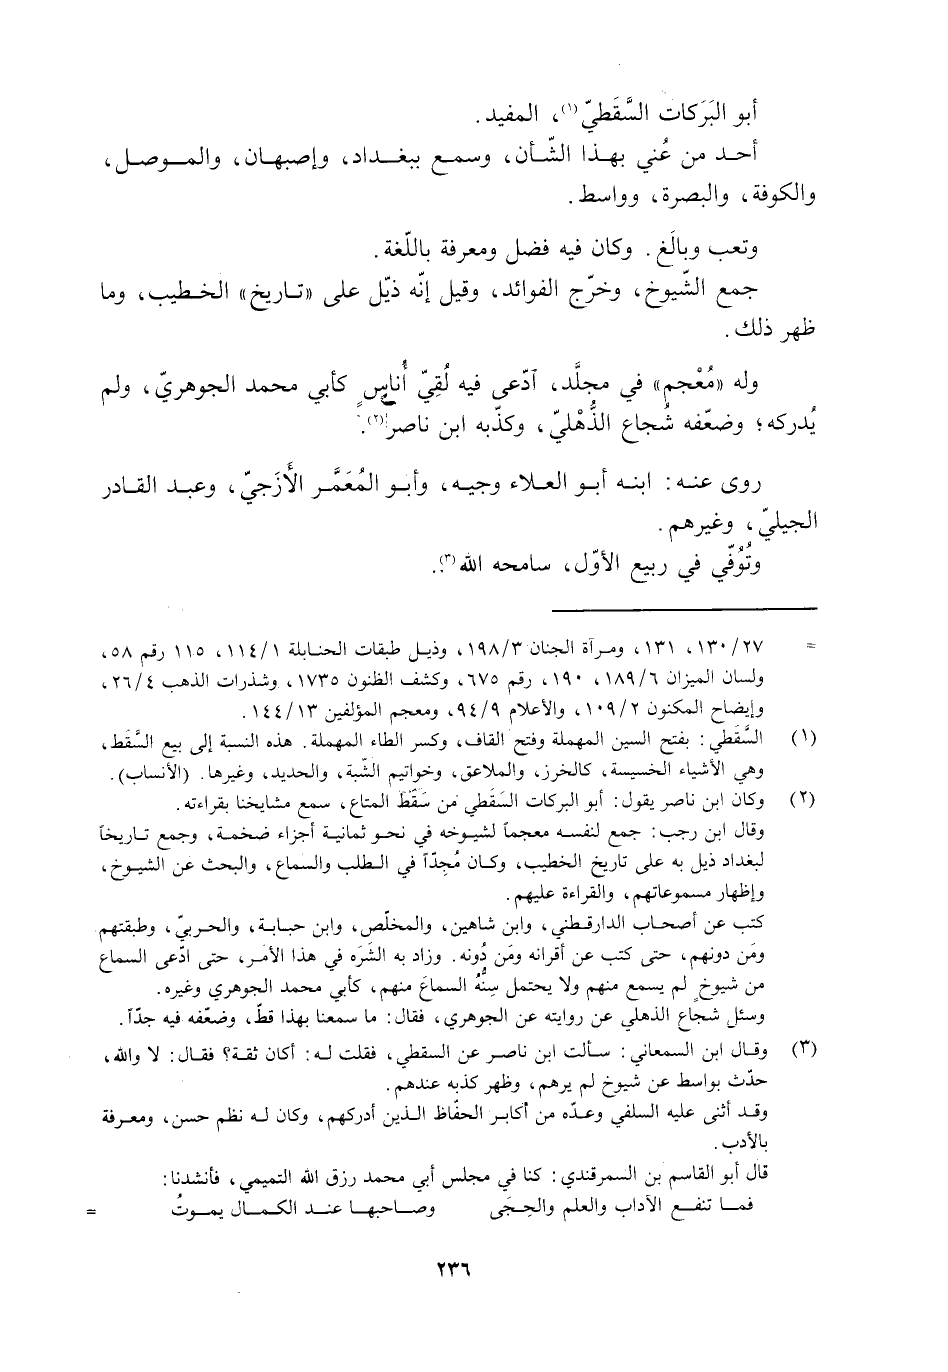 أبو البَرَكات السَّقَطيّ(١)، المفيد.
أحد من عُني بهذا الشّأن، وسمع ببغداد، وإصبهان، والموصل،
والكوفة، والبصرة، وواسط.
وتعب وبالَغ. وكان فيه فضل ومعرفة باللّغة.
جمع الشّيوخ، وخرّج الفوائد، وقيل إنّه ذيّل على «تاريخ» الخطيب، وما
ظهر ذلك.
وله «مُعْجم» في مجلَّد، آدّعى فيه لُقِيّ أُناسٍ كأبي محمد الجوهريّ، ولم
يُدركه؛ وضعّفه شُجاع الذُّهْليّ، وكذّبه ابن ناصر(٢).
روى عنه: ابنه أبو العلاء وجيه، وأبو المُعَمَّر الأَزَجيّ، وعبد القادر
الجيليّ، وغيرهم.
وتُوُفّي في ربيع الأوّل، سامحه الله(٣).
= ١٣٠/٢٧، ١٣١، ومرآة الجنان ١٩٨/٣، وذيل طبقات الحنابلة ١١٤/١، ١١٥ رقم ٥٨،
ولسان الميزان ١٨٩/٦، ١٩٠، رقم ٦٧٥، وكشف الظنون ١٧٣٥، وشذرات الذهب ٢٦/٤،
وإيضاح المكنون ١٠٩/٢، والأعلام ٩٤/٩، ومعجم المؤلفين ١٤٤/١٣.
(١) السَّقَطي: بفتح السين المهملة وفتح القاف، وكسر الطاء المهملة. هذه النسبة إلى بيع السَّقَط،
وهي الأشياء الخسيسة، كالخرز، والملاعق، وخواتيم الشّبة، والحديد، وغيرها. (الأنساب).
(٢) وكان ابن ناصر يقول: أبو البركات السَقَطي من سَقَط المتاع، سمع مشايخنا بقراءته.
وقال ابن رجب: جمع لنفسه معجماً لشيوخه في نحو ثمانية أجزاء ضخمة، وجمع تاريخاً
لبغداد ذيل به على تاريخ الخطيب، وكان مُجِدّاً في الطلب والسماع، والبحث عن الشيوخ،
وإظهار مسموعاتهم، والقراءة عليهم.
كتب عن أصحاب الدارقطني، وابن شاهين، والمخلّص، وابن حبابة، والحربيّ، وطبقتهم
ومَن دونهم، حتى كتب عن أقرانه ومَن دُونه. وزاد به الشَرَه في هذا الأمر، حتى ادّعى السماع
من شيوخٍ لم يسمع منهم ولا يحتمل سِنُّهُ السماعَ منهم، كأبي محمد الجوهري وغيره.
وسئل شجاع الذهلي عن روايته عن الجوهري، فقال: ما سمعنا بهذا قطّ، وضعّفه فيه جدّاً.
(٣) وقال ابن السمعاني: سألت ابن ناصر عن السقطي، فقلت له: أكان ثقة؟ فقال: لا والله،
حدّث بواسط عن شيوخ لم يرهم، وظهر كذبه عندهم.
وقد أثنى عليه السلفي وعدّه من أكابر الحفّاظ الذين أدركهم، وكان له نظم حسن، ومعرفة
بالأدب.
قال أبو القاسم بن السمرقندي: كنا في مجلس أبي محمد رزق الله التميمي، فأنشدنا:
فما تنفع الآداب والعلم والحِجَى وصاحبها عند الكمال يموتُ =
٢٣٦